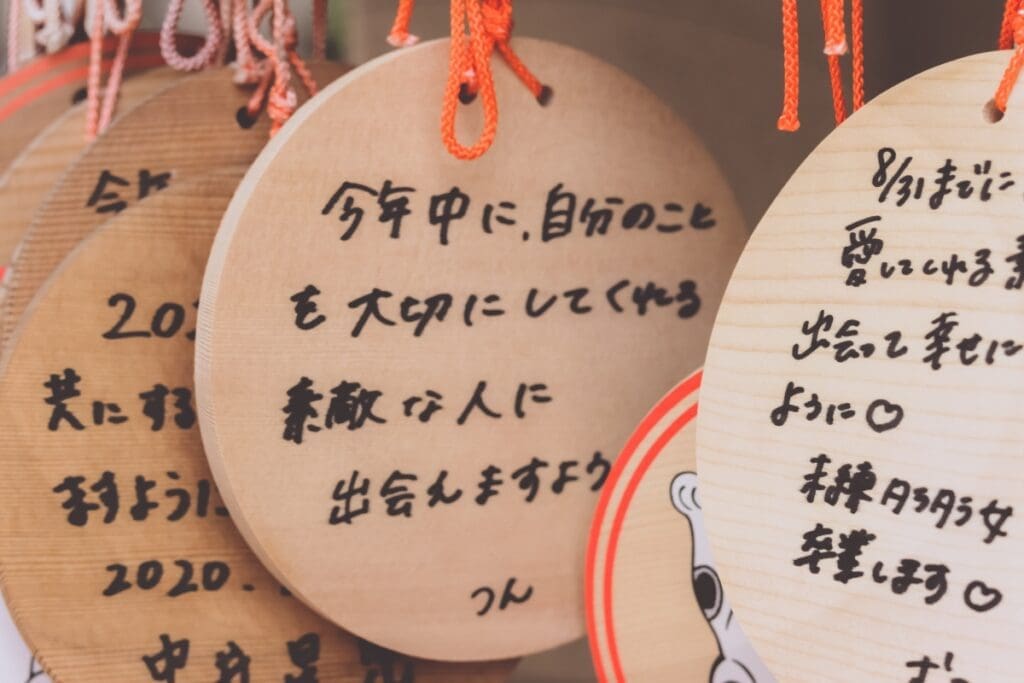 今年
202
共にする
ますように
2020.
中井
今年中に、自分のこと
を大切にしてくれる
素敵な人に
出会えますよう
つん
8/31までに
愛してくれる素
出会って幸せに
ように♡
未練タラタラ女
卒業します♡